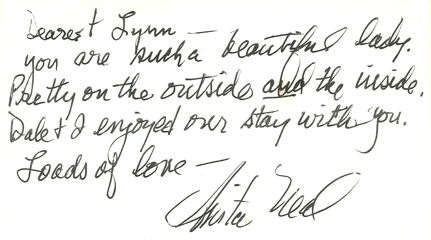 Dearest Lynn —
you are such a beautiful lady.
Pretty on the outside and the inside.
Dale & I enjoyed our stay with you.
Loads of love —
Neal